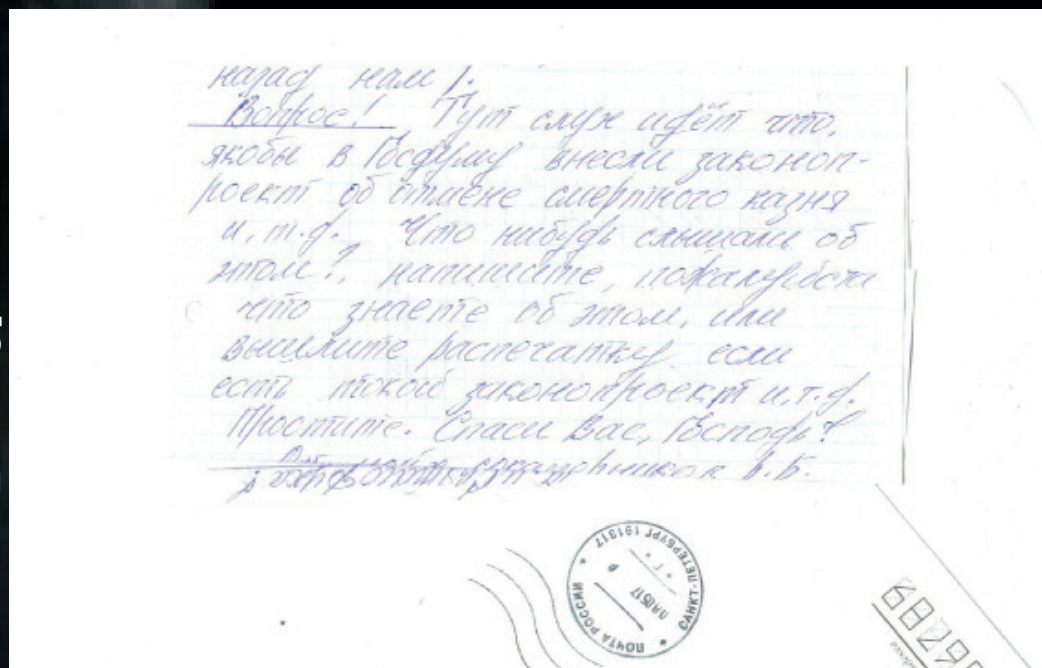 назад нам /.
Вопрос! Тут слух идёт что,
якобы в Госдуму внесли законоп-
роект об отмене смертного казня
и, т.д. Что нибудь слышали об
этом?, напишите, пожалуйста
что знаете об этом, или
вышлите распечатку если
есть такой законопроект и.т.д.
Простите. Спаси Вас, Господь!
В.Б.
ПОЧТА РОССИИ
САНКТ-ПЕТЕРБУРГ 191317